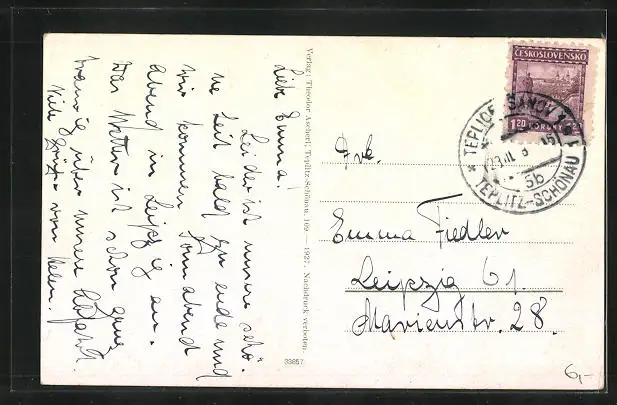 Liebe Emma!
Leider ist unsere schö-
ne Zeit bald zu ende und
wir kommen Sonnabend
abend in Leipzig an.
Das Wetter ist schon ganz
traurig über unsere Abfahrt.
Viele Grüße von Helen.
Verlag: Theodor Aschert, Teplitz-Schönau. 169 — 1927. Nachdruck verboten.
33857
ČESKOSLOVENSKO
1.20 KORUNY
TEPLICE-ŠANOV 1
TEPLITZ-SCHÖNAU
3b
Frl.
Emma Fiedler
Leipzig 61.
Marienstr. 28.
6,-